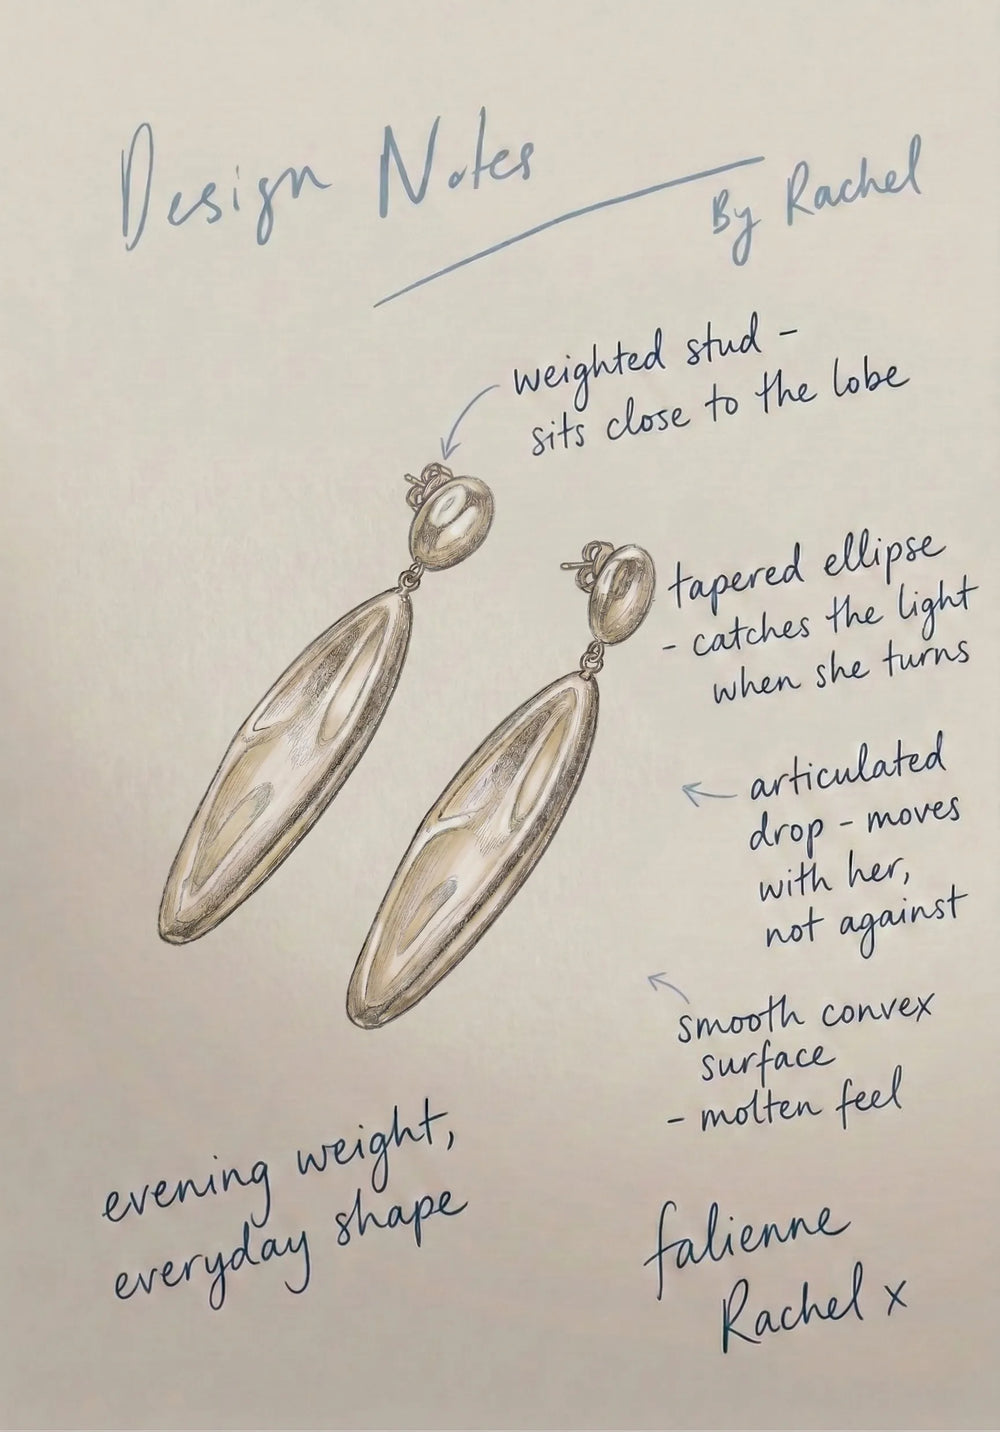 Design Notes
By Rachel
weighted stud -
sits close to the lobe
tapered ellipse
- catches the light
when she turns
articulated
drop - moves
with her,
not against
smooth convex
surface
- molten feel
evening weight,
everyday shape
falienne
Rachel x